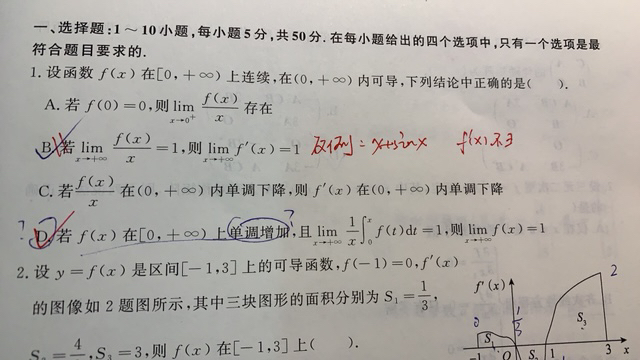 一、选择题:1～10小题,每小题5分,共50分.在每小题给出的四个选项中,只有一个选项是最
符合题目要求的.
1. 设函数 f(x) 在[0,+∞) 上连续,在(0,+∞) 内可导,下列结论中正确的是( ).
A. 若 f(0)=0,则 lim_{x→0⁺} f(x)/x 存在
B. 若 lim_{x→+∞} f(x)/x = 1,则 lim_{x→+∞} f′(x)=1 反例= x+sinx f′(x)不∃
C. 若 f(x)/x 在(0,+∞) 内单调下降,则 f′(x) 在(0,+∞) 内单调下降
? D. 若 f(x) 在[0,+∞) 上单调增加,且 lim_{x→+∞} 1/x ∫₀ˣ f(t)dt=1,则 lim_{x→+∞} f(x)=1 ?
2. 设 y=f(x) 是区间[-1,3] 上的可导函数, f(-1)=0, f′(x)
的图像如 2 题图所示,其中三块图形的面积分别为 S₁=1/3,
4/3, S₃=3,则 f(x) 在[-1,3] 上( ).
f′(x)
2
S₁
S₃
-1
1
3
x